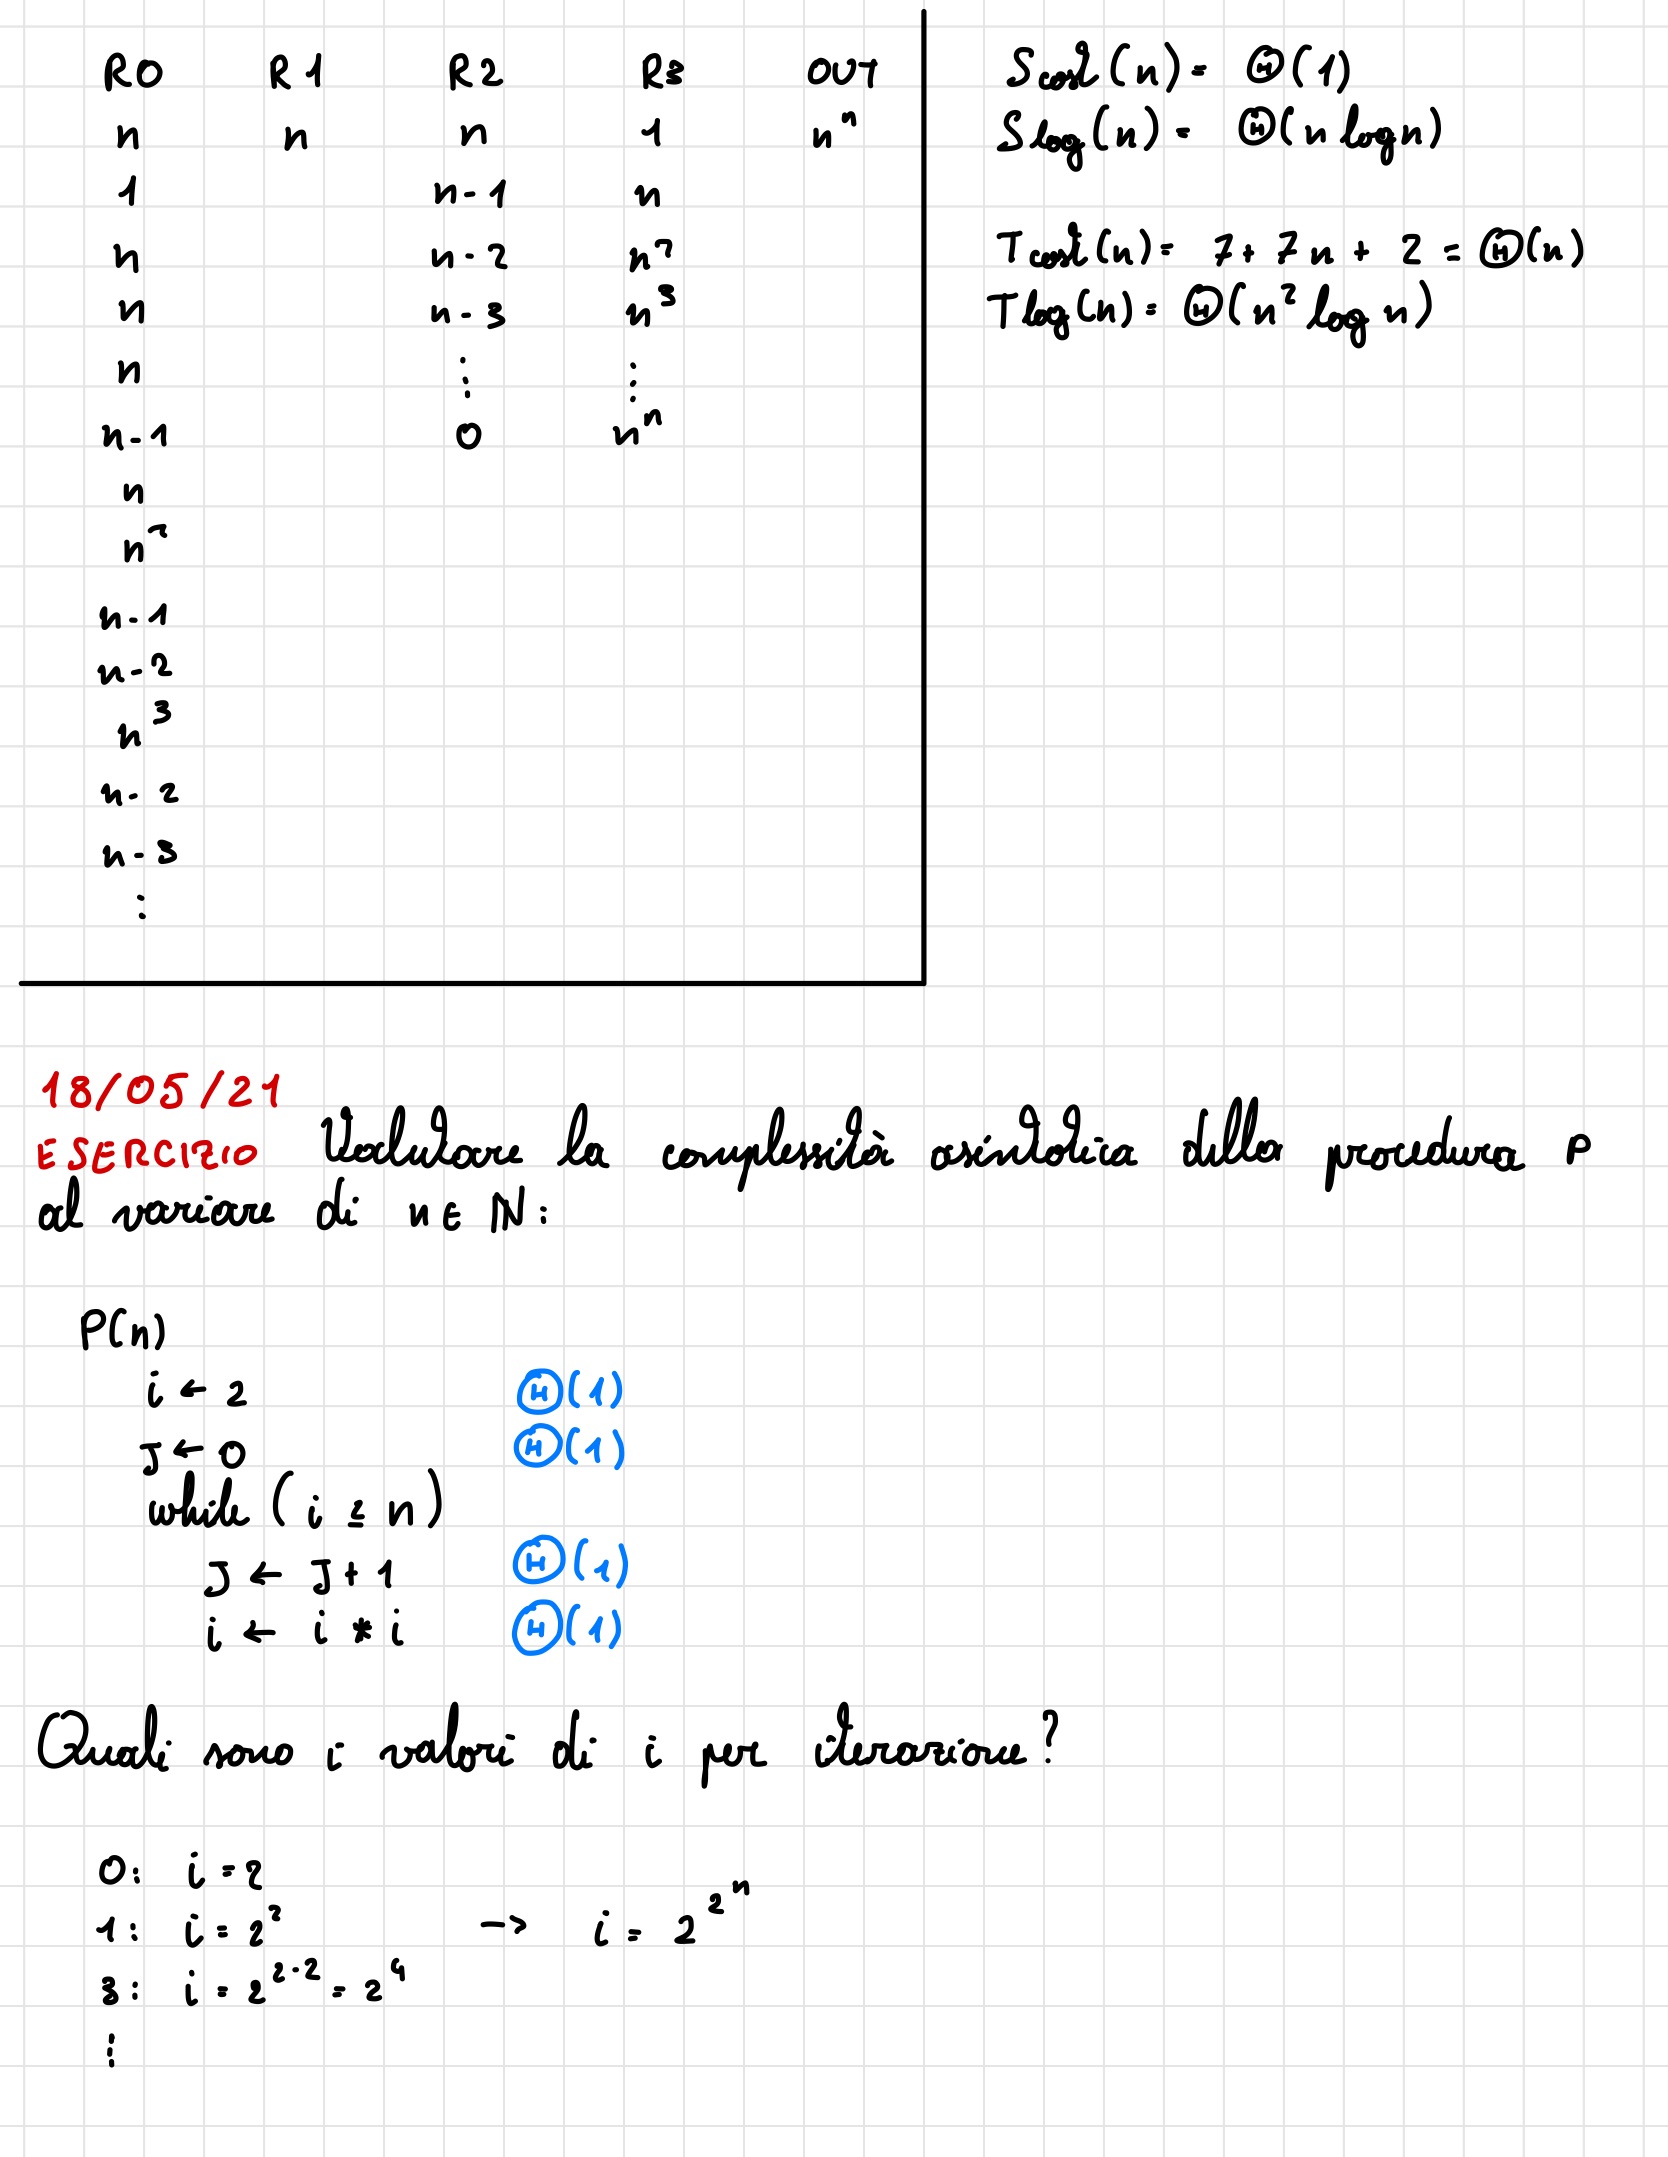 R0 R1 R2 R3 OUT
n n n 1 nⁿ
1 n-1 n
n n-2 n²
n n-3 n³
n ⋮ ⋮
n-1 0 nⁿ
n
n²
n-1
n-2
n³
n-2
n-3
⋮
Scost(n) = Θ(1)
Slog(n) = Θ(n log n)
Tcost(n) = 7 + 7n + 2 = Θ(n)
Tlog(n) = Θ(n² log n)
18/05/21
ESERCIZIO Valutare la complessità asintotica della procedura P
al variare di n ∈ ℕ:
P(n)
i ← 2 Θ(1)
J ← 0 Θ(1)
while (i ≤ n)
J ← J + 1 Θ(1)
i ← i * i Θ(1)
Quali sono i valori di i per iterazione?
0: i = 2
1: i = 2² -> i = 2^2^n
3: i = 2^2·2 = 2⁴
⋮